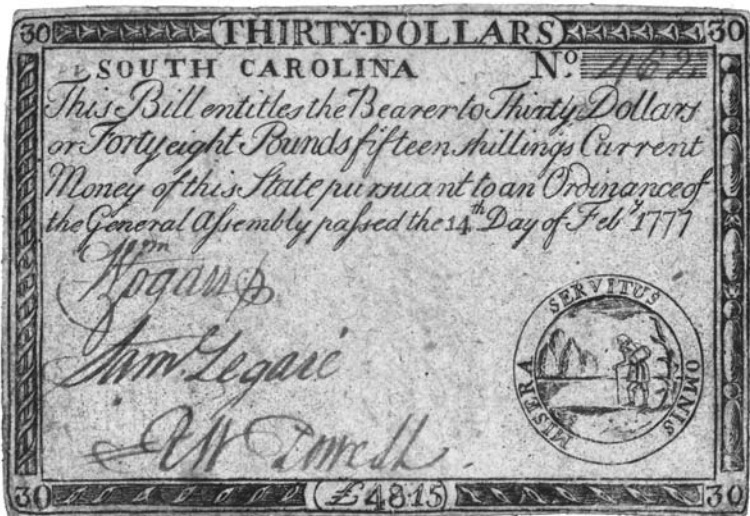 30 THIRTY·DOLLARS 30
SOUTH CAROLINA Nº 462
This Bill entitles the Bearer to Thirty Dollars
or Forty eight Pounds fifteen shillings Current
Money of this State pursuant to an Ordinance of
the General Assembly paſsed the 14th Day of Feby 1777
Wm
Logan
Saml Legaré
MISERA SERVITUS OMNIS
30 £48·15 30